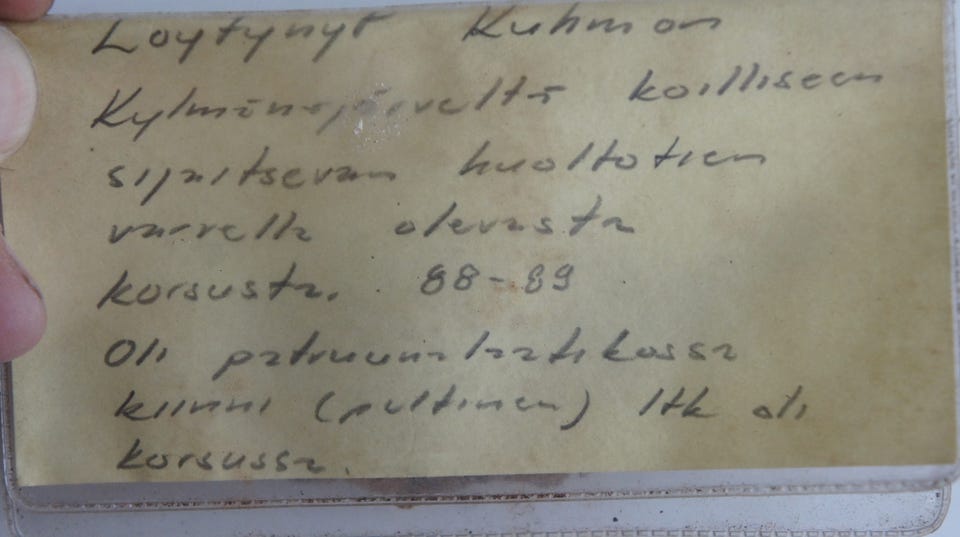 Löytynyt Kuhmon
Kylmänsjärveltä koilliseen
sijaitsevan huoltotien
varrella olevasta
korsusta. 88-89
Oli patruunalaatikossa
kiinni (peltinen) ltk oli
korsussa.